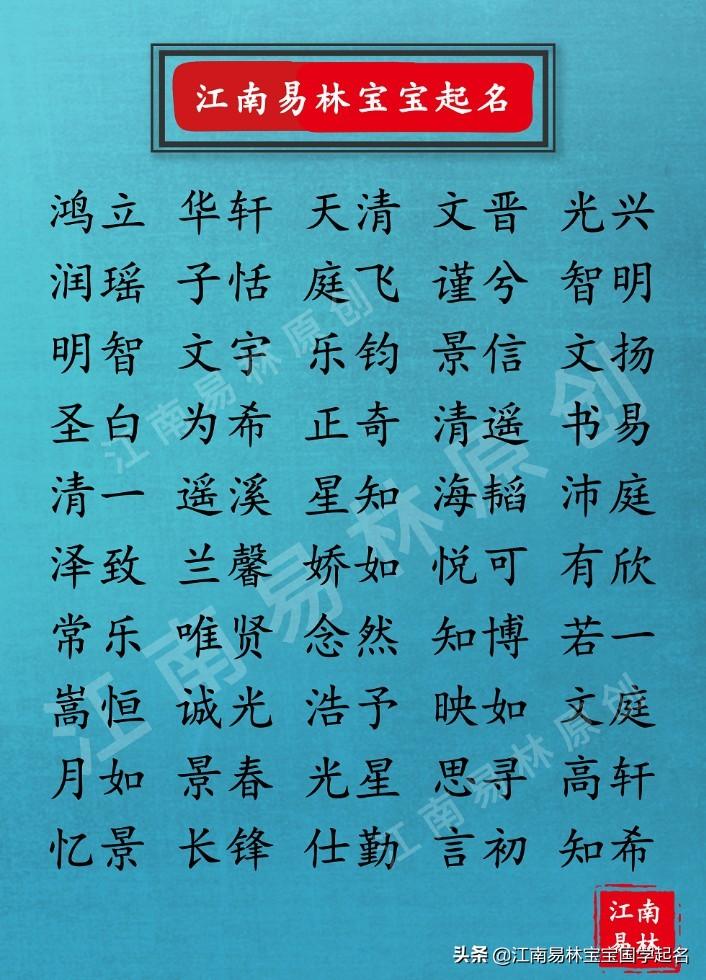 江南易林宝宝起名
鸿立 华轩 天清 文晋 光兴
润瑶 子恬 庭飞 谨兮 智明
明智 文宇 乐钧 景信 文扬
圣白 为希 正奇 清遥 书易
清一 遥溪 星知 海韬 沛庭
泽致 兰馨 娇如 悦可 有欣
常乐 唯贤 念然 知博 若一
嵩恒 诚光 浩予 映如 文庭
月如 景春 光星 思寻 高轩
忆景 长锋 仕勤 言初 知希
江南易林原创
江南易林原创
江南易林原创
江南
易林
头条 @江南易林宝宝国学起名